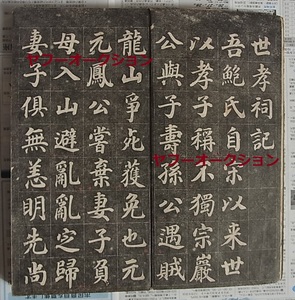 世孝祠記
吾鮑氏自宋以来世
以孝子稱不獨宗巖
公與子壽孫公遇賊
龍山爭死獲免也元
元鳳公嘗棄妻子負
母入山避亂亂定歸
妻子俱無恙明先尚
ヤフーオークション
ヤフーオークション